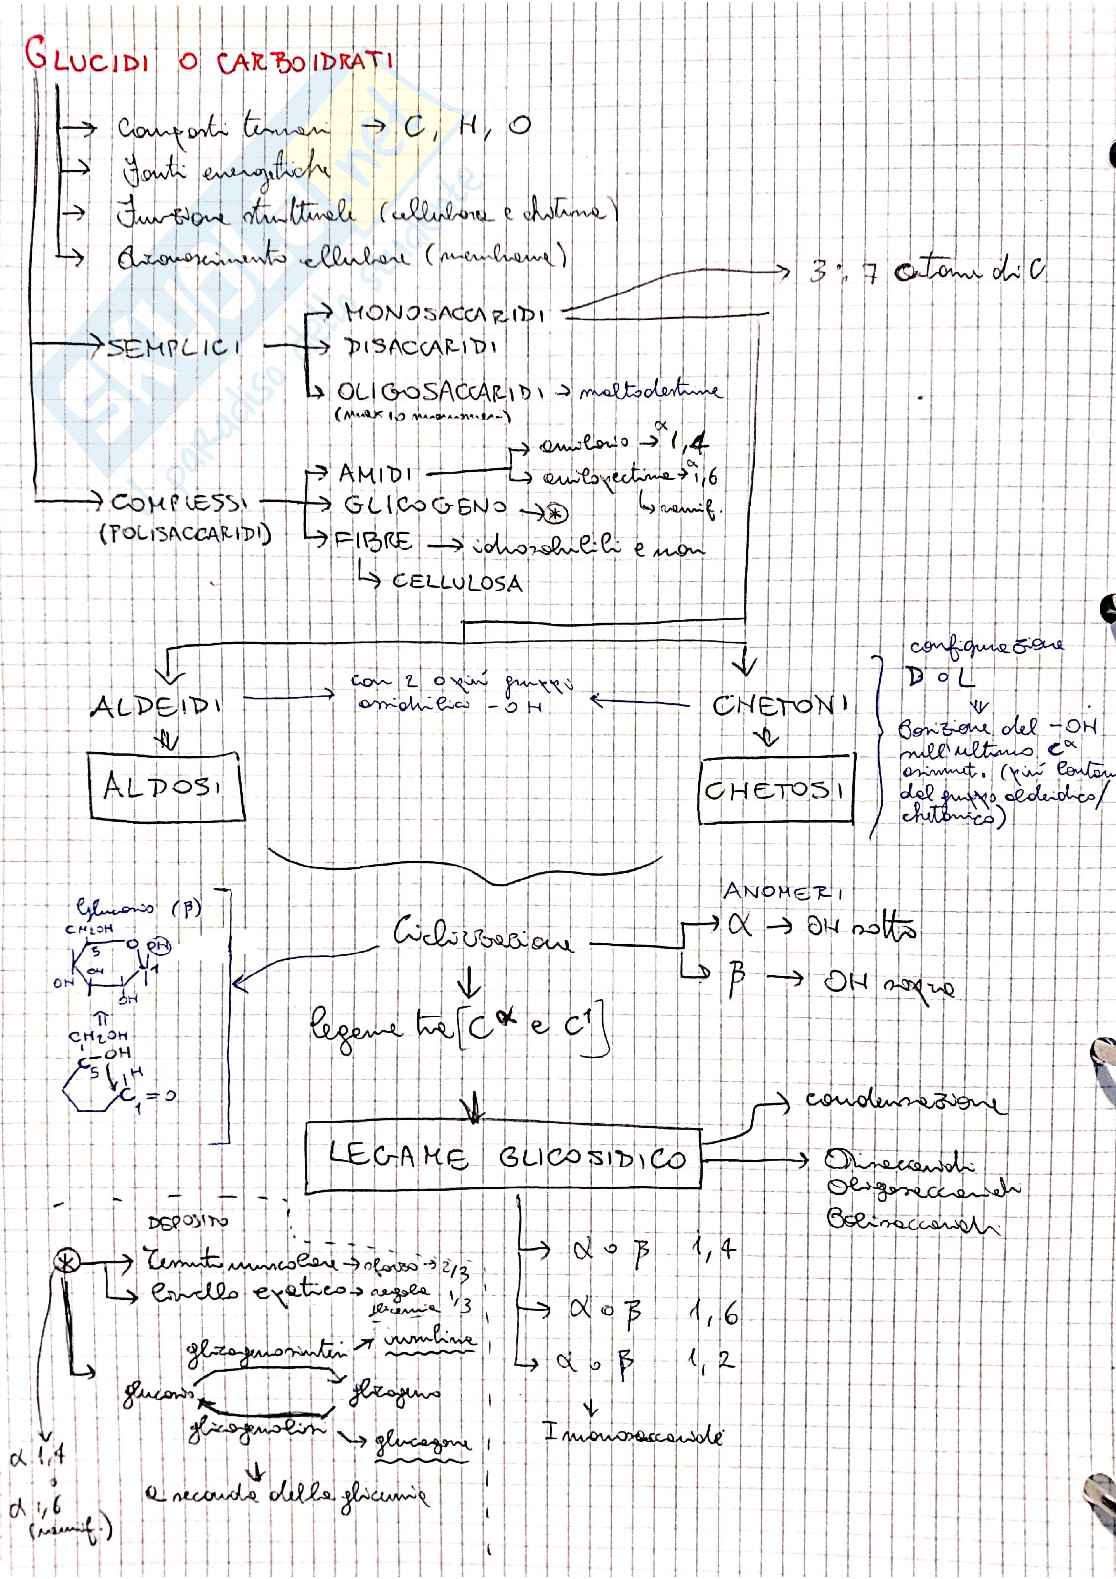 GLUCIDI O CARBOIDRATI
Composti ternari → C, H, O
Fonti energetiche
Funzione strutturale (cellulosa e chitina)
Riconoscimento cellulare (membrana)
3 ÷ 7 atomi di C
MONOSACCARIDI
SEMPLICI
DISACCARIDI
OLIGOSACCARIDI → maltodestrine
(max 10 monomeri)
amilosio → α 1,4
AMIDI
amilopectina → α 1,6
ramif.
COMPLESSI
(POLISACCARIDI)
GLICOGENO → *
FIBRE → idrosolubili e non
CELLULOSA
configurazione
D o L
ALDEIDI
con 2 o più gruppi
ossidrilici -OH
CHETONI
Posizione del -OH
sull'ultimo C α
asimmet. (più lontano
dal gruppo aldeidico/
chetonico)
ALDOSI
CHETOSI
Glucosio (β)
CH2OH
5
O
OH
1
OH
OH
OH
CH2OH
C-OH
5
H
C1=O
Ciclizzazione
ANOMERI
α → OH sotto
β → OH sopra
legame tra [C α e C1]
LEGAME GLICOSIDICO
condensazione
Disaccaridi
Oligosaccaridi
Polisaccaridi
α o β 1,4
α o β 1,6
α o β 1,2
I monosaccaride
DEPOSITO
* Tessuto muscolare → sforzo → 2/3
Livello epatico → regola 1/3
glicemia
glicogenosintesi → insulina
glucosio
glicogeno
glicogenolisi → glucagone
a seconda della glicemia
α 1,4
o
α 1,6
(ramif.)